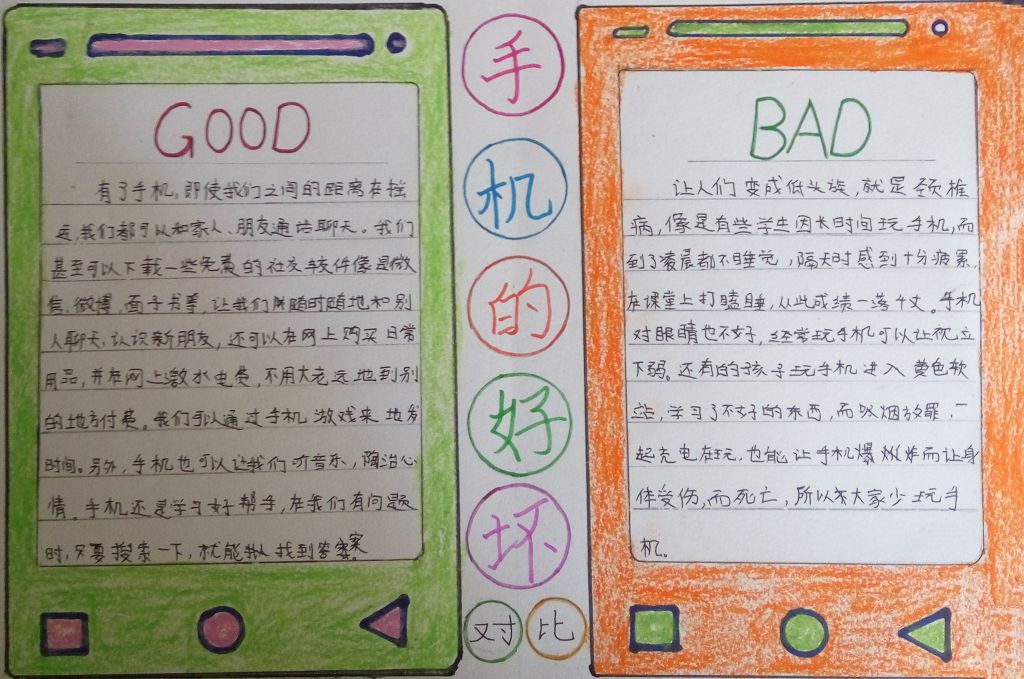 GOOD
有了手机,即使我们之间的距离在摇
远,我们都可以和家人、朋友通话聊天。我们
甚至可以下载一些免费的社交软件像是微
信,微博,面子书等,让我们随时随地和别
人聊天,认识新朋友,还可以在网上购买日常
用品,并在网上激水电费,不用大老远地到别
的地方付费。我们可以通过手机游戏来地发
时间。另外,手机也可以让我们听音乐,陶冶心
情。手机还是学习好帮手,在我们有问题
时,只要搜索一下,就能找到答案。
手
机
的
好
坏
对比
BAD
让人们变成低头族,就是颈椎
病,像是有些学生因长时间玩手机,而
到了凌晨都不睡觉,隔天时感到十分疲累,
在课堂上打瞌睡,从此成绩一落千丈。手机
对眼睛也不好,经常玩手机可以让视立
下弱。还有的孩子玩手机进入黄色软
学习了不好的东西,而吸烟放罪,一
起充电在玩,也能让手机爆炸而让身
体受伤,而死亡,所以大家少玩手
机。